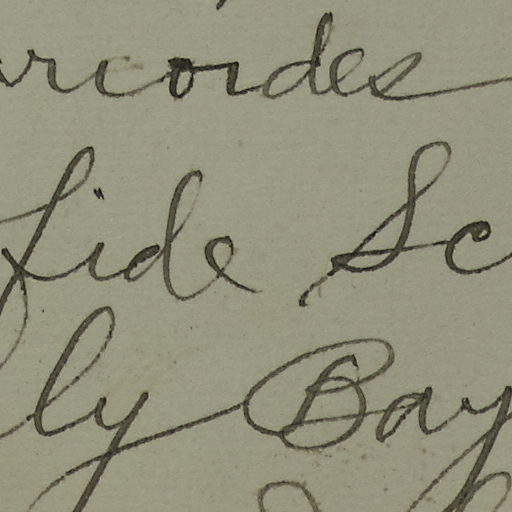 rcoides
fide Sc
ly Bay